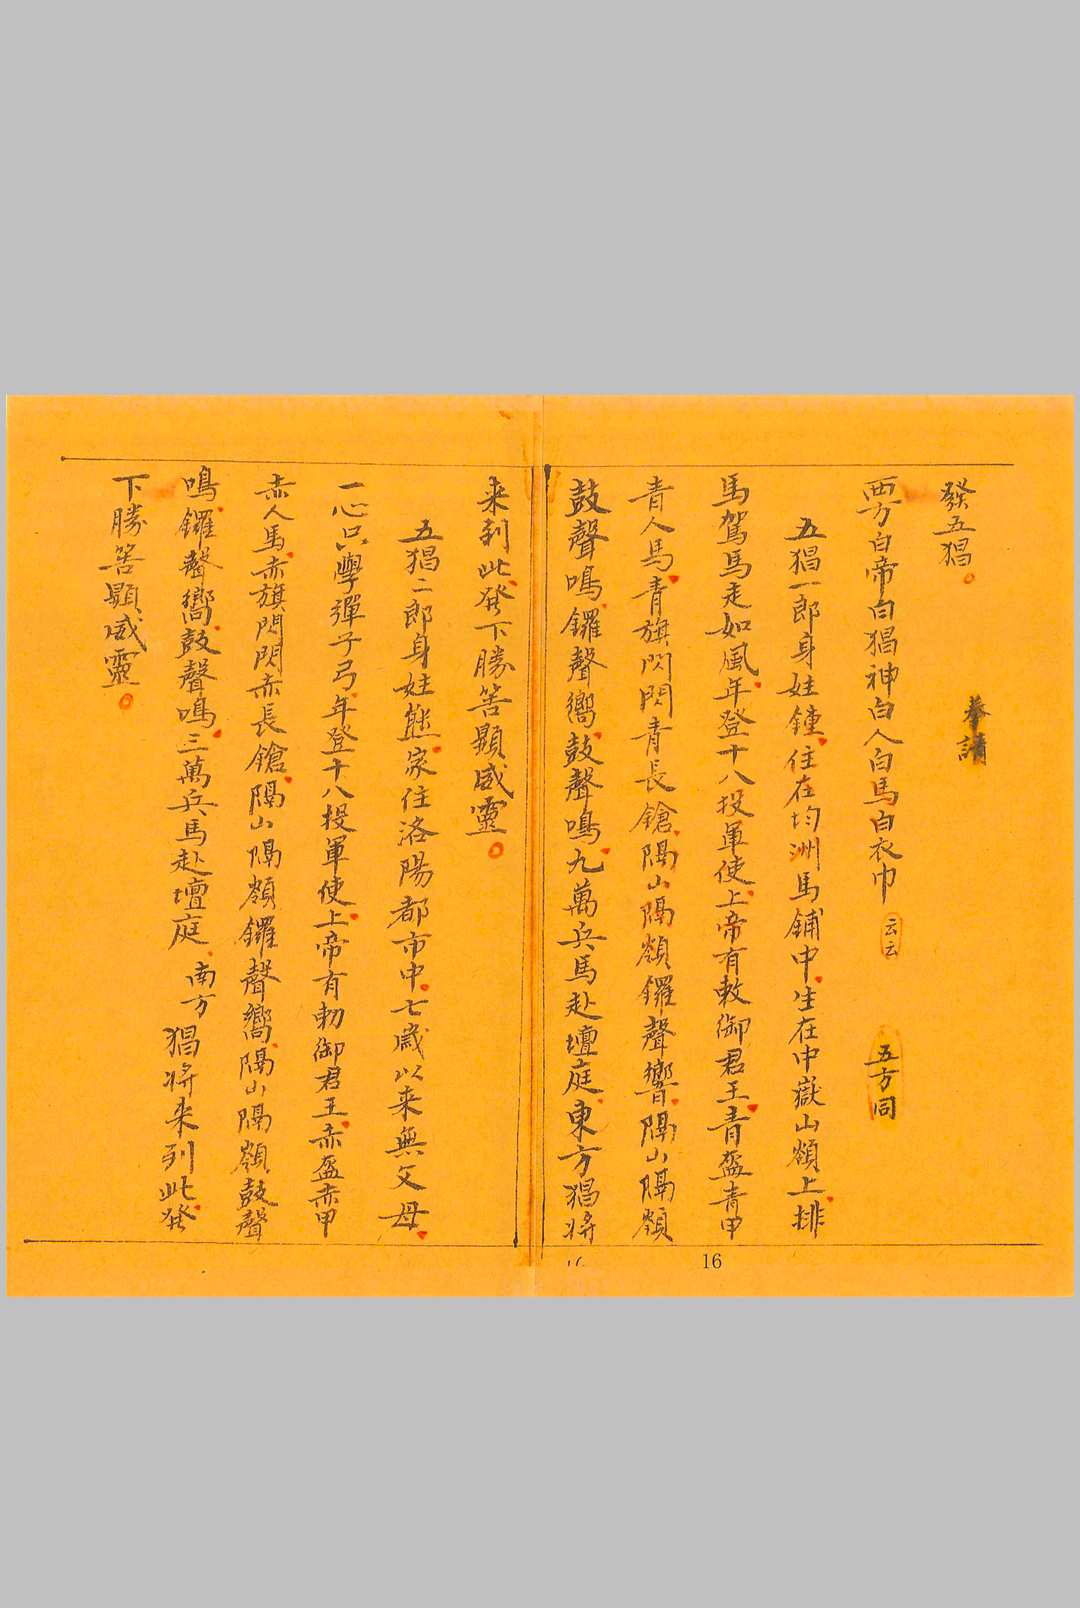 發五猖。
奉請
西方白帝白猖神白人白馬白衣巾 云云 五方同
五猖一郎身姓鍾住在均洲馬鋪中生在中嶽山嶺上排
馬駕馬走如風年登十八投軍使上帝有敕御君王青盔青甲
青人馬青旗閃閃青長鎗隔山隔嶺鑼聲響隔山隔嶺
鼓聲鳴鑼聲嚮鼓聲鳴九萬兵馬赴壇庭東方猖将
来到此發下勝筶顯威靈。
五猖二郎身姓熊家住洛陽都市中七歲以来無父母
一心只學彈子弓年登十八投軍使上帝有勅御君王赤盔赤甲
赤人馬赤旗閃閃赤長鎗隔山隔嶺鑼聲嚮隔山隔嶺鼓聲
鳴鑼聲嚮鼓聲鳴三萬兵馬赴壇庭南方猖将来到此發
下勝筶顯威靈。
16